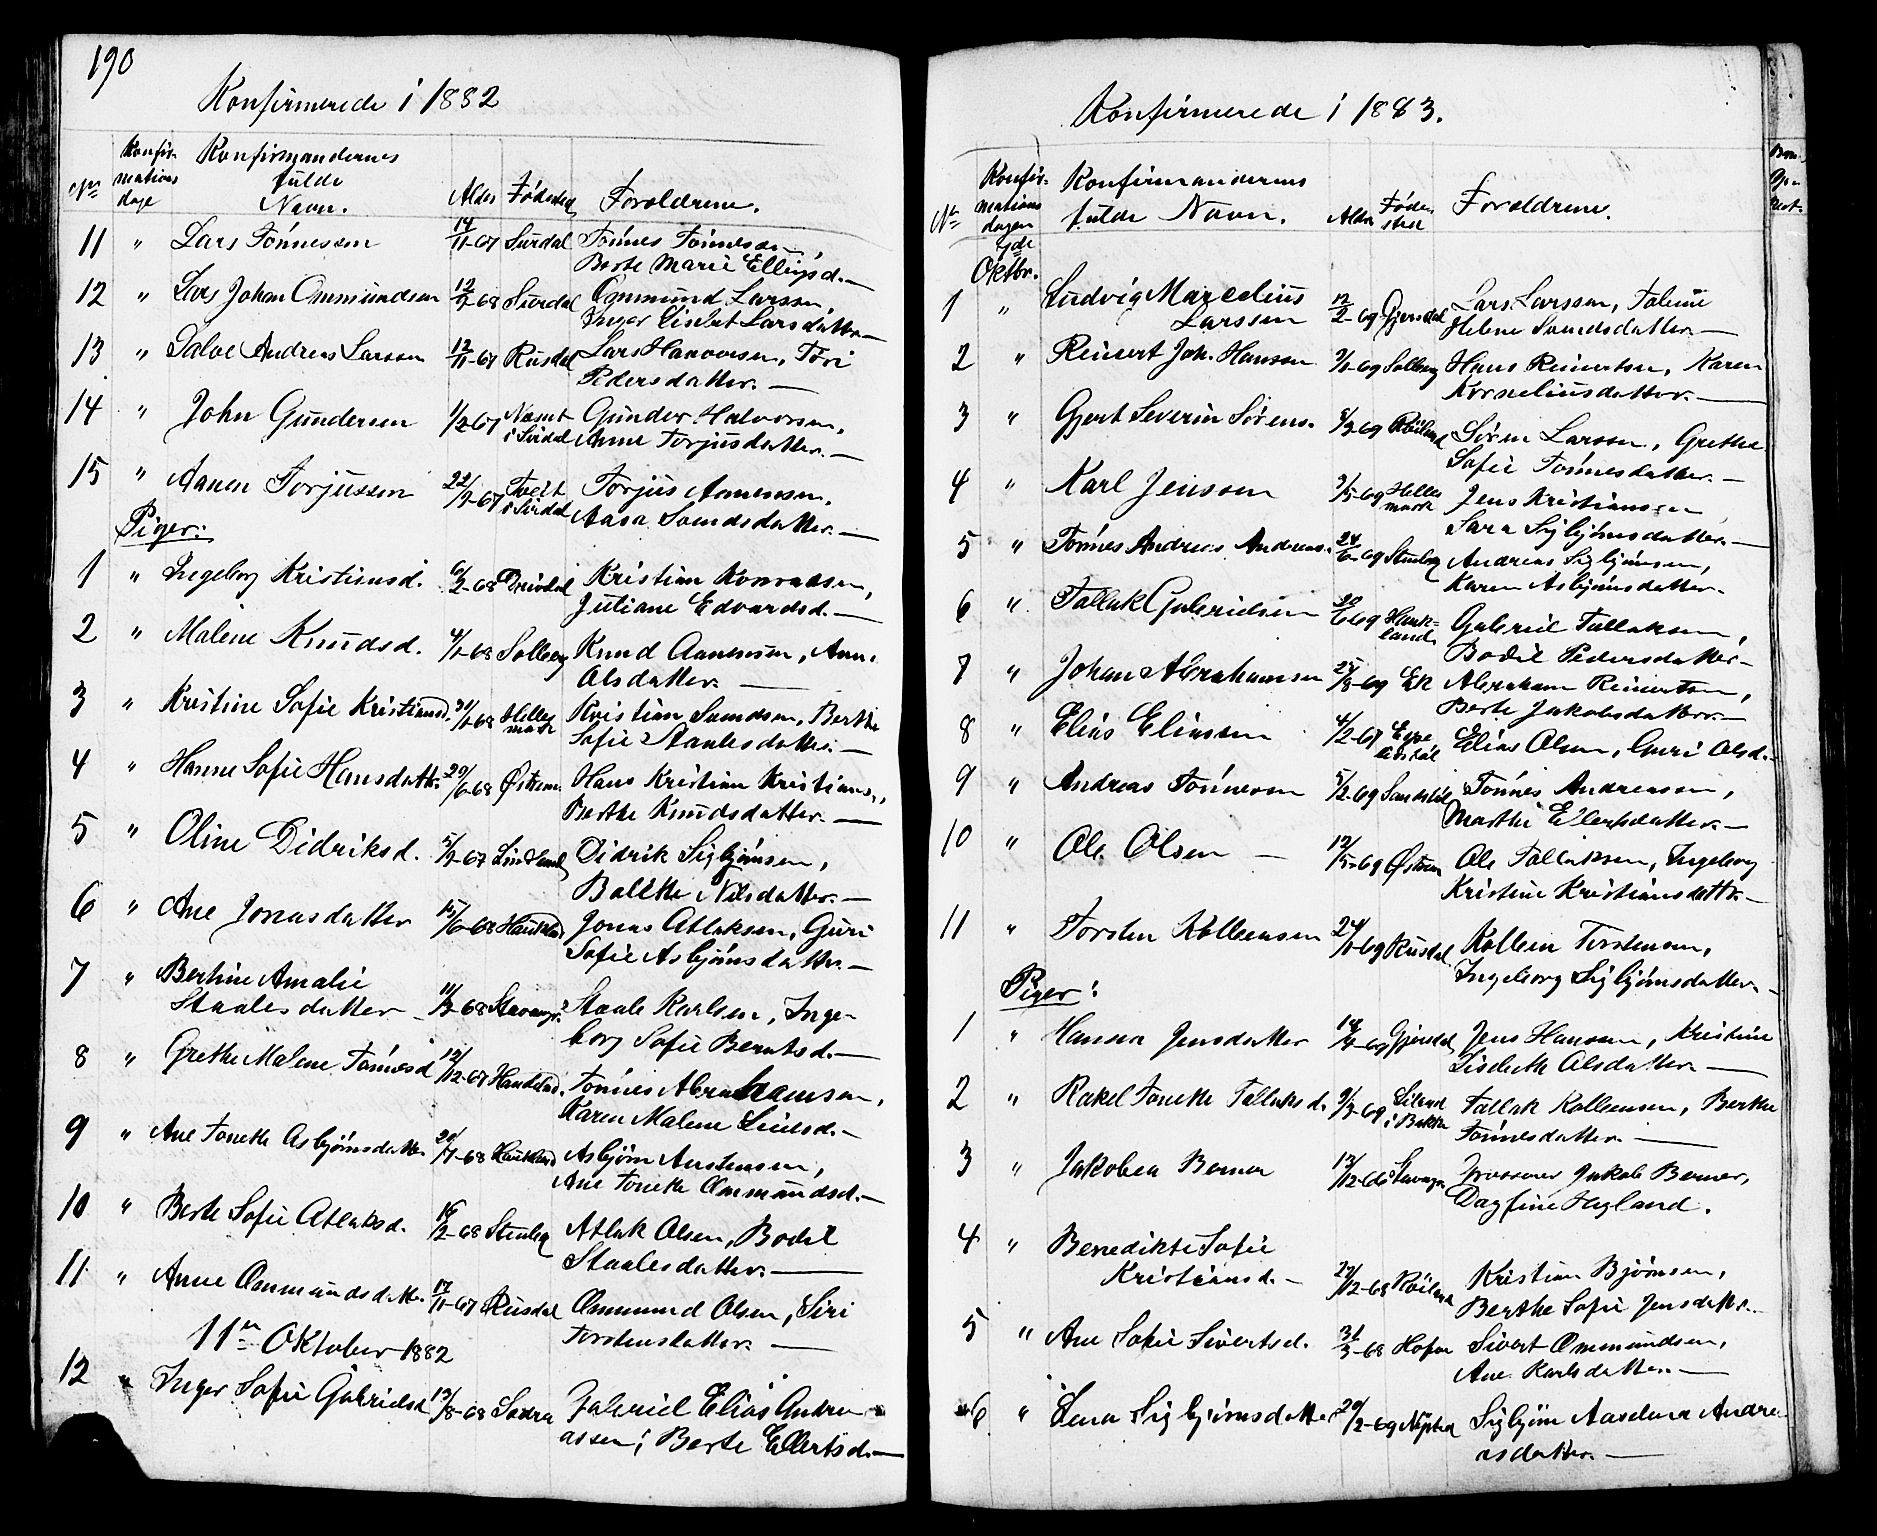 190
Konfirmerede i 1882
No Konfir- Konfirmandernes
mations fulde
dage Navn. Alder Fødested Forældrene.
11 " Lars Tönnessen 14/11-67 Surdal Tönnes Tönnesen,
Berte Marie Ellingsd. —
12 " Lars Johan Ommundsen 12/9-68 Surdal Ommund Larssen,
Inger Lisbet Larsdatter —
13 " Salve Andreas Larssen 12/11-67 Rusdal Lars Hanovesen, Tøri
Pedersdatter. —
14 " John Gundersen 1/2-67 Gunder Halvorsen,
i Sirdal Anne Torjusdatter. —
15 " Aanen Torjussen 22/9-67 Tveit Torjus Aanensen,
i Sirdal Aasa Svendsdatter. —
Piger:
1 " Ingeborg Kristiansd. 6/2-68 Kristian Konradsen,
Juliane Edvardsd. —
2 " Malene Knudsd. 4/1-68 Solberg Knud Aanensen, Anne
Olsdatter. —
3 " Kristine Sofie Kristiansd. 31/1-68 Helles Kristian Svendsen, Berthe
mark Sofie Staalesdatter. —
4 " Hanne Sofie Hansdatt. 20/6-68 Østrem Hans Kristian Kristians.,
Berthe Knudsdatter. —
5 " Oline Didriksd. 5/9-67 Lindland Didrik Sigbjörnsen,
Bolette Nilsdatter. —
6 " Ane Jonasdatter 15/6-68 Haukland Jonas Atlaksen, Guri
Sofie Asbjörnsdatter —
7 " Bertine Amalie
Staalesdatter 11/3-68 Stavanger Staale Karlsen, Inge-
borg Sofie Berntsd. —
8 " Grethe Malene Tönnesd 12/12-67 Haukland. Tönnes Abrahamsen,
Karen Malene —
9 " Ane Tonette Asbjörnsdatter 20/7-68 Haukland Asbjörn Austensen,
Ane Tonette Ommundsd. —
10 " Berte Sofie Atlaksd. 16/2-68 Stenberg Atlak Olsen, Bodil
Staalesdatter. —
11 " Anne Ommundsdatter 17/11-67 Rusdal Ommund Olsen, Siri
Torstensdatter. —
11te Oktober 1882
12 " Inger Sofie Gabrielsd 13/8-68 Sadra Gabriel Elias Andre-
assen; Berte Ellertsd. —
Konfirmerede i 1883.
No Konfir- Konfirmandernes
mations fulde Navn. Alder Føde- Forældrene.
dagen sted
7de
Oktbr.
1 " Ludvig Marcelius 12/2-69 Gjersdal Lars Larssen, Taline
Larssen Helene Svendsdatter. —
2 " Reinert Joh. Hansen 3/1-69 Solberg Hans Reinertsen, Karen
Korneliusdatter. —
3 " Gjert Severin Sörens. 8/3-69 Röiland Sören Larssen, Grethe
Sofie Tönnesdatter. —
4 " Karl Jenssen 3/5-69 Helles Jens Kristiansen
mark Sara Sigbjörnsdatter. —
5 " Tönnes Andreas Andreas. 24/6-69 Stenberg Andreas Sigbjörnsen,
Karen Asbjörnsdatter.
6 " Tallak Gabrielsen 20/6-69 Hauk- Gabriel Tallaksen,
land Bodil Pedersdatter —
7 " Johan Abrahamsen 25/8-69 Ek Abraham Reinertsen,
Berte Jakobsdatter. —
8 " Elias Eliassen 4/2-67 Elias Olsen, Guri Olsd. —
9 " Andreas Tönnessen 5/2-69 Tönnes Andreassen,
Marthe Ellertsdatter. —
10 " Ole Olsen — 12/5-69 Østrem Ole Tallaksen, Ingeborg
Kristine Kristiansdattr. —
11 " Torsten Kolleensen 24/1-69 Rusdal Kolleen Torstensen,
Ingeborg Sigbjörnsdatter. —
Piger:
1 " Hansea Jensdatter Gjersdal Jens Hansen, Kristine
Lisbeth Olsdatter. —
2 " Rakel Tonette Tallaksd. 9/3-69 Eiland Tallak Kolleensen, Berthe
i Bakke Tönnesdatter. —
3 " Jakobea Berner 12/12-68 Stavanger Jakob Berner,
Dagfine Høyland.
4 " Benedikte Sofie
Kristiansd. — 27/12-68 Röiland Kristian Bjørnsen,
Berthe Sofie Jensdatter.
5 " Ane Sofie Sivertsd. 31/3-68 Hofen Sivert Ommundsen,
Ane Karlsdatter. —
6 " Lena Sigbjörnsdatter 20/2-69 Sigbjörn Aasdena Andre-
asdatter. —